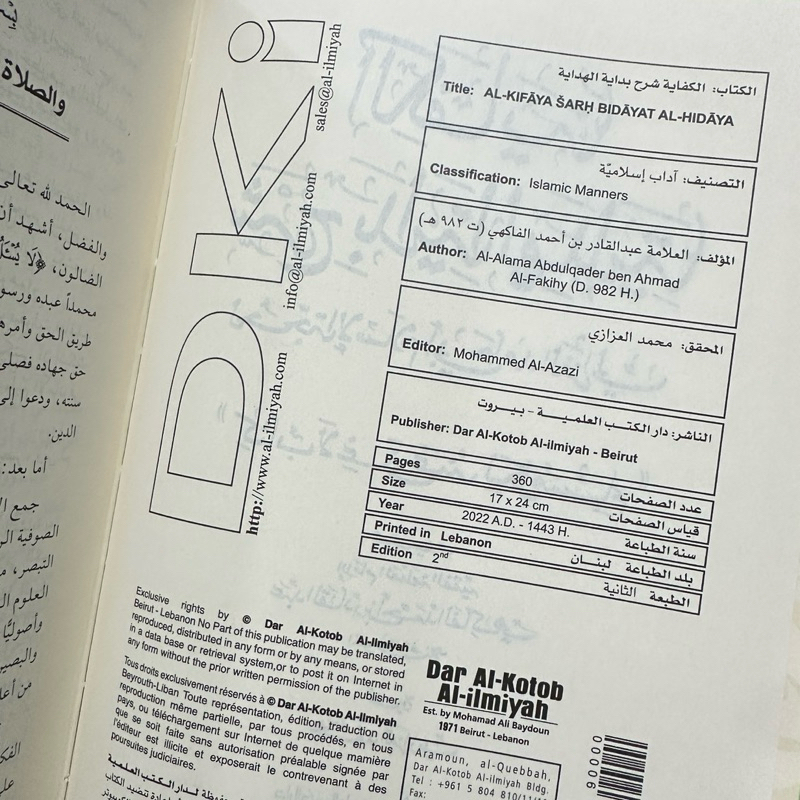 والصلاة
الحمد لله تعالى
والفضل، أشهد أن
الضالون، ﴿لَا يُسْئَلُ
محمداً عبده ورسو
طريق الحق وأمره
حق جهاده فصلى
سنته، ودعوا إلى
الدين.
أما بعد:
جمع ا
الصوفية الر
التبصر، م
العلوم ال
وأصوليًّا
والبصير
من أعل
الفك
على
DKi
http://www.al-ilmiyah.com
info@al-ilmiyah.com
sales@al-ilmiyah
الكتاب: الكفاية شرح بداية الهداية
Title: AL-KIFĀYA ŠARḤ BIDĀYAT AL-HIDĀYA
التصنيف: آداب إسلاميّة
Classification: Islamic Manners
المؤلف: العلامة عبدالقادر بن أحمد الفاكهي (ت ٩٨٢ هـ)
Author: Al-Alama Abdulqader ben Ahmad
Al-Fakihy (D. 982 H.)
المحقق: محمد العزازي
Editor: Mohammed Al-Azazi
الناشر: دار الكتب العلميـــة - بيروت
Publisher: Dar Al-Kotob Al-ilmiyah - Beirut
Pages 360 عدد الصفحات
Size 17 x 24 cm قياس الصفحات
Year 2022 A.D. - 1443 H. سنة الطباعة
Printed in Lebanon بلد الطباعة لبنـان
Edition 2nd الطبعة الثانية
Exclusive rights by © Dar Al-Kotob Al-Ilmiyah
Beirut - Lebanon No Part of this publication may be translated,
reproduced, distributed in any form or by any means, or stored
in a data base or retrieval system,or to post it on Internet in
any form without the prior written permission of the publisher.
Tous droits exclusivement réservés à © Dar Al-Kotob Al-Ilmiyah
Beyrouth-Liban Toute représentation, édition, traduction ou
reproduction même partielle, par tous procédés, en tous
pays, ou téléchargement sur Internet de quelque manière
que se soit faite sans autorisation préalable signée par
l'éditeur est illicite et exposerait le contrevenant à des
poursuites judiciaires.
Dar Al-Kotob
Al-ilmiyah
Est. by Mohamad Ali Baydoun
1971 Beirut - Lebanon
Aramoun, al-Quebbah,
Dar Al-Kotob Al-Ilmiyah Bldg.
Tel : +961 5 804 810/11/
Fax: